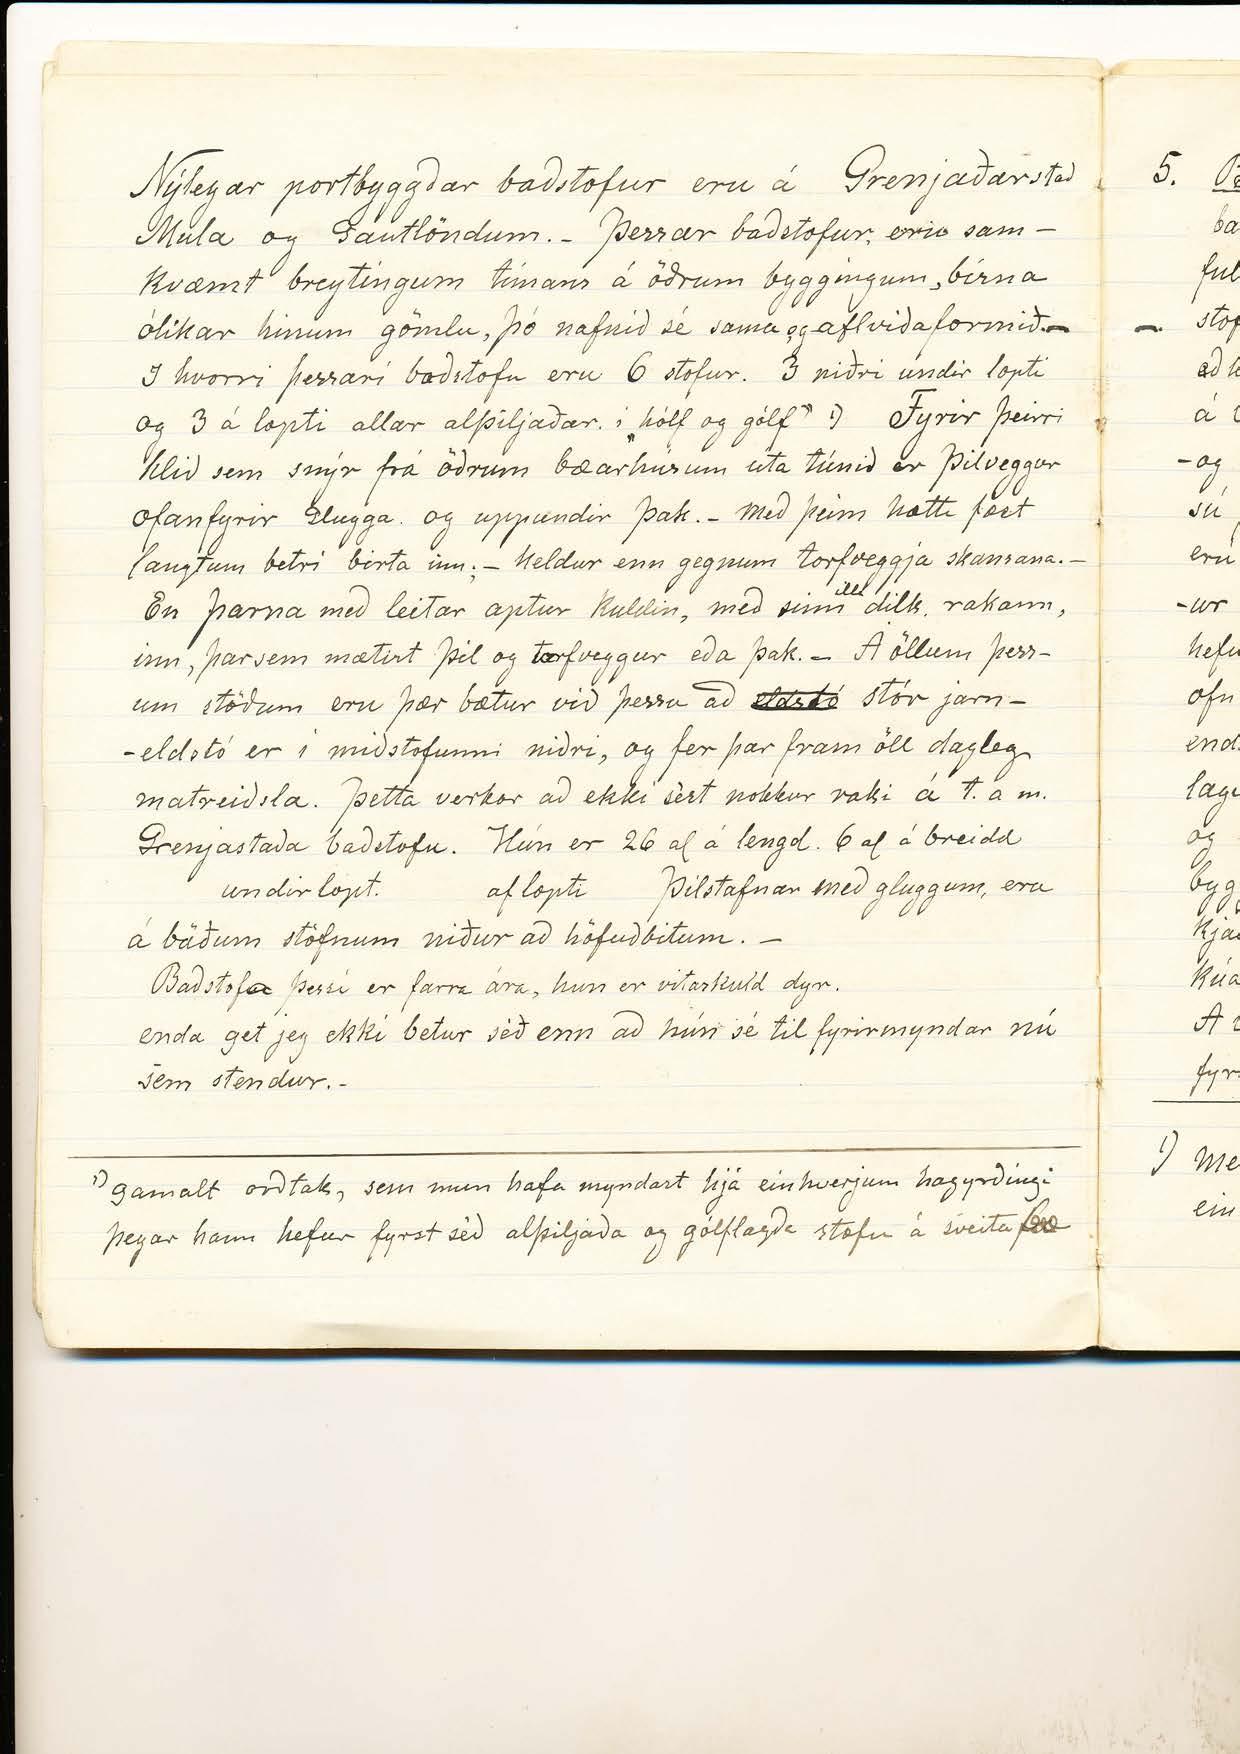 Nýlegar portbyggðar baðstofur eru á Grenjaðarstað
Múla og Gautlöndum. – Þessar baðstofur, eru sam-
kvæmt breytingum tímans á öðrum byggingum,
ólikar hinum gömlu, þó nafnið sé sama og aflviðaformið. –
I hvorri þessari baðstofu eru 6 stofur. 3 niðri undir lopti
og 3 á lopti allar alþiljaðar. i „hólf og gólf" 1) Fyrir þeirri
hlið sem snýr frá öðrum bæarhúsum úta túnið er þilveggur
ofanfyrir glugga. og uppundir þak. – Með þeim hætti fæst
langtum betri birta inn; – heldur enn gegnum torfveggja skansana. –
En þarna með leitar aptur kuldin, með sinn illa dilk. rakann,
inn, þarsem mætist þil og torfveggur eða þak. – A öllum þess-
um stöðum eru þær bætur við þessu að eldstó stór jarn-
-eldstó er í miðstofunni niðri, og fer þar fram öll dagleg
matreiðsla. Þetta verkar að ekki sést nokkur raki á t. a m.
Grenjastaða baðstofu. Hún er 26 al á lengd. 6 al á breidd
undir lopt. af lopti Þilstafnar með gluggum, eru
á báðum stöfnum niður að höfuðbitum. –
Baðstofa þessi er farra ára, hun er vitaskuld dyr.
enda get jeg ekki betur séð enn að hún sé til fyrirmyndar nú
sem stendur. –
1) gamalt orðtak, sem mun hafa myndast hjá einhverjum hagyrðingi
þegar hann hefur fyrst séð alþiljaða og gólflagða stofu á sveita
5.
ba
ful
– stof
að
á
-og
sú
eru
-ur
hefu
ofn
end
lag
og
bygg
kja
kúa
A
fyr
1) Me
ein